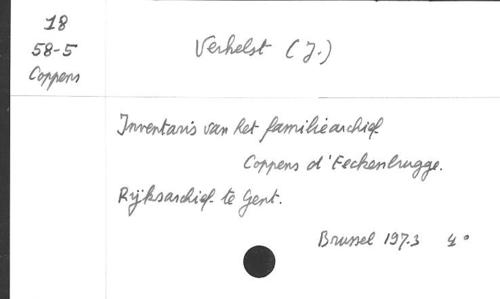 18
58-5
Coppens
Verhelst (J.)
Inventaris van het familiearchief
Coppens d'Eeckenbrugge.
Rijksarchief te Gent.
Brussel 1973 4°